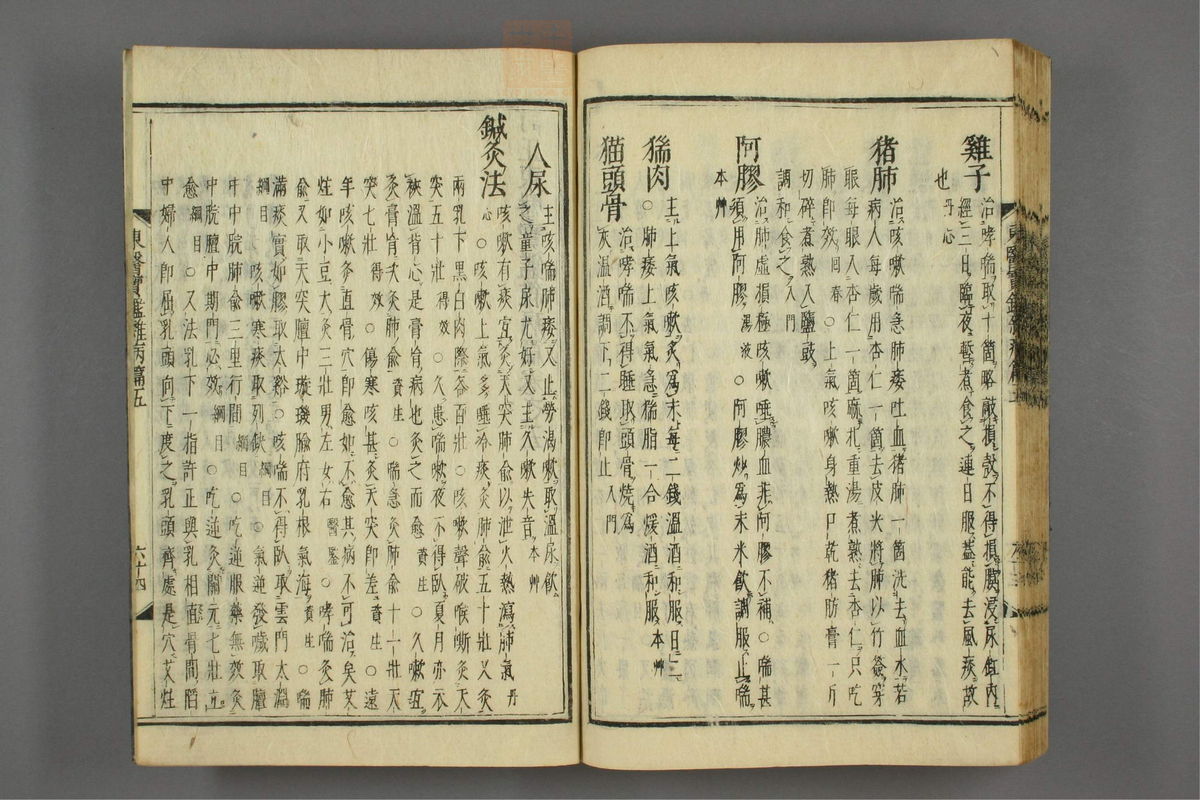 雞子 治哮喘取十箇略敲損殼不得損膜浸尿缸內
經三日臨夜煮食之連日服蓋能去風痰故
也丹心
猪肺 治咳嗽喘急肺痿吐血猪肺一箇洗去血水若
病人每歲用杏仁一箇去皮尖將肺以竹簽穿
眼每眼入杏仁一箇麻扎重湯煮熟去杏仁只吃
肺卽效回春○上氣咳嗽身熱口乾猪肪膏一斤
切碎煮熟入鹽豉
調和食之入門
阿膠 治肺虛損極咳嗽唾膿血非阿膠不補○喘甚
須用阿膠湯液○阿膠炒爲末米飮調服止喘
本艸
猯肉 主上氣咳嗽炙爲末每二錢溫酒和服日二
○肺痿上氣氣急猯脂一合煖酒和服本艸
猫頭骨 治哮喘不得睡取頭骨燒爲
灰溫酒調下二錢卽止入門
人尿 主咳喘肺痿又止勞渴嗽取溫尿飮
之童子尿尤好又主久嗽失音本艸
鍼灸法 咳嗽有痰宜灸天突肺俞以泄火熱瀉肺氣丹
心○咳嗽上氣多唾冷痰灸肺俞五十壯又灸
兩乳下黑白肉際各百壯○咳嗽聲破喉嘶灸天
突五十壯得效○久患喘嗽夜不得臥夏月亦衣
裌溫背心是膏肓病也灸之而愈資生○久嗽宜
灸膏肓次灸肺俞資生○喘急灸肺俞十一壯天
突七壯得效○傷寒咳甚灸天突卽差資生○遠
年咳嗽灸直骨穴卽愈如不愈其病不可治矣艾
炷如小豆大灸三壯男左女右醫鑑○哮喘灸肺
俞又取天突膻中璇璣腧府乳根氣海資生○喘
滿痰實如膠取太谿○咳喘不得臥取雲門太淵
綱目○咳嗽寒痰取列缺綱目○氣逆發噦取膻
中中脘肺俞三里行間綱目○吃逆服藥無效灸
中脘膻中期門必效綱目○吃逆灸關元七壯立
愈綱目○又法乳下一指許正與乳相直骨間陷
中婦人卽屈乳頭向下度之乳頭齊處是穴艾炷
東醫寶鑑雜病篇五
六十四